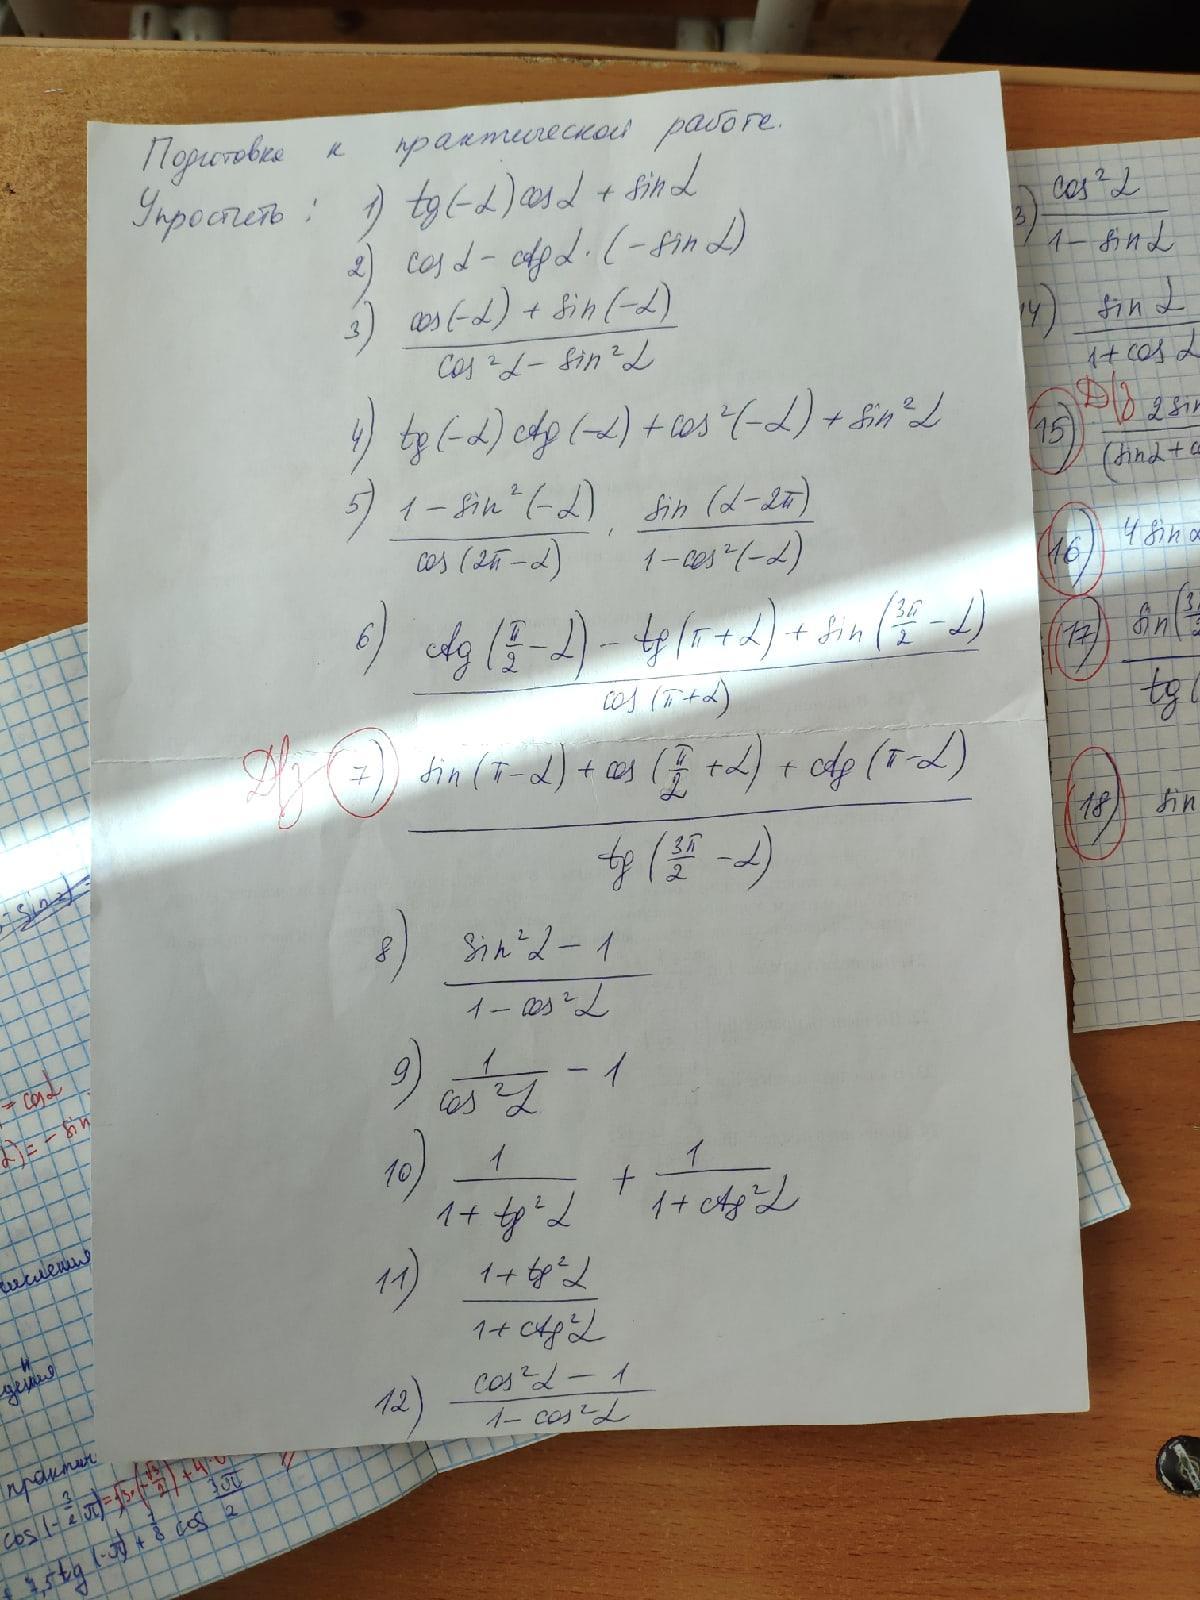 Подготовка к практической работе.
Упростить: 1) tg(-α)cosα + sinα
2) cosα - ctgα·(-sinα)
3) cos(-α) + sin(-α)
cos²α - sin²α
4) tg(-α) ctg(-α) + cos²(-α) + sin²α
5) 1 - sin²(-α) · sin(α-2π)
cos(2π-α) 1-cos²(-α)
6) ctg(π/2-α) - tg(π+α) + sin(3π/2-α)
cos(π+α)
Д/з 7) sin(π-α) + cos(π/2+α) + ctg(π-α)
tg(3π/2-α)
8) sin²α - 1
1 - cos²α
9) 1/cos²α - 1
10) 1 + 1
1+tg²α 1+ctg²α
11) 1+tg²α
1+ctg²α
12) cos²α - 1
1-cos²α
3) cos²α
1-sinα
14) sinα
1+cosα
Д/з
15) 2sin
(sinα+co
16) 4sinα
17) sin(3π/2
tg(
18) sin
= cosα
α) = -sin
числения
и
дения
практич
cos(-3/2π)
7,5tg(-π) + cos 3π/2